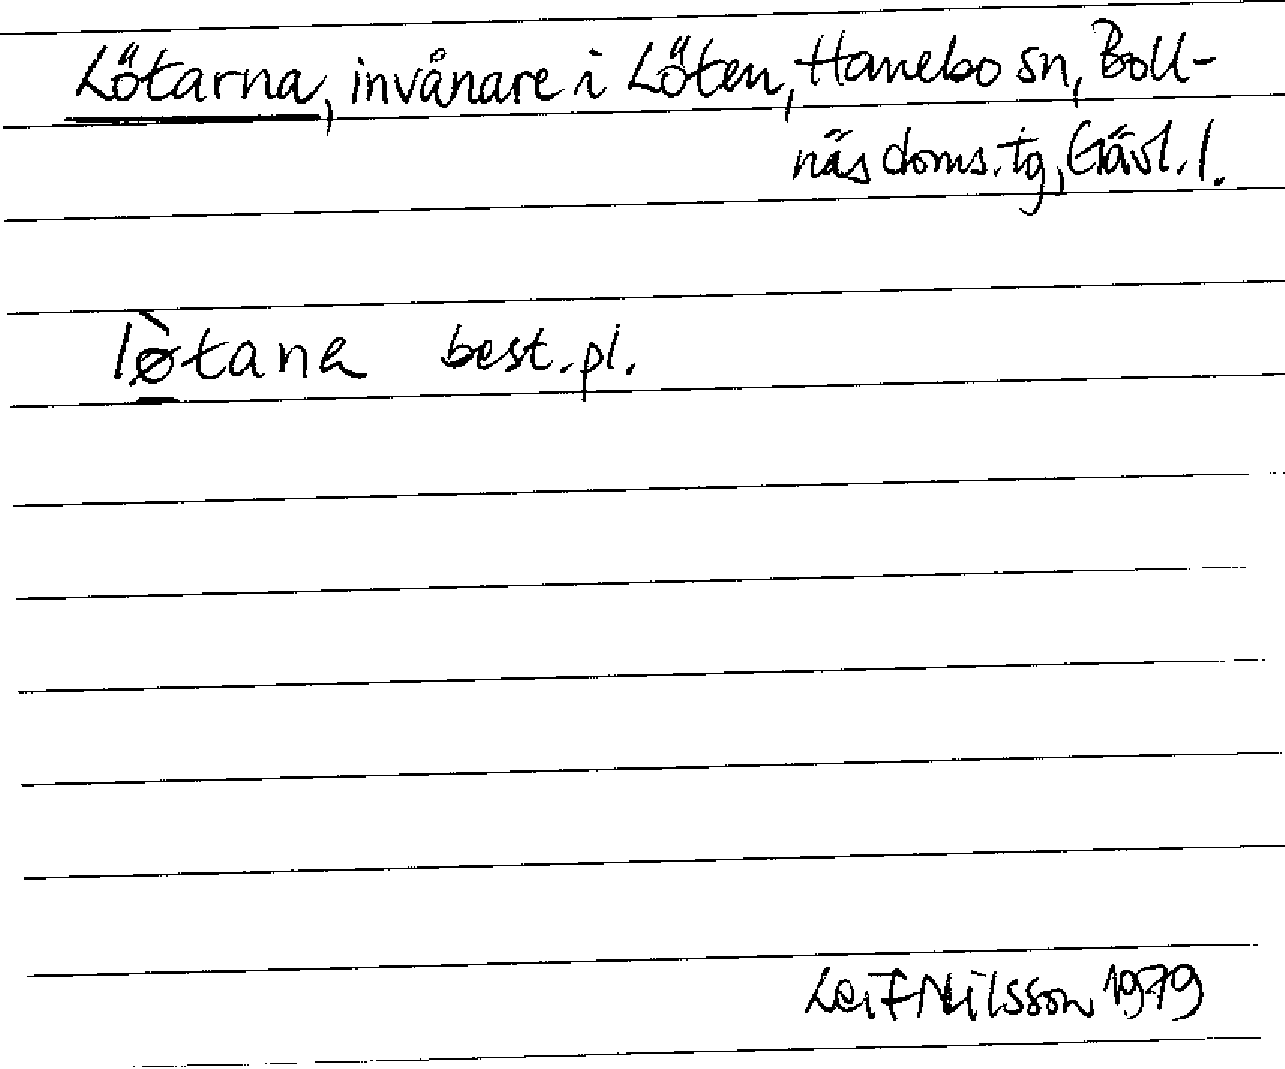 Lötarna, invånare i Löten, Hanebo sn, Boll-
näs doms.tg, Gävl. l.
lø̀tana best. pl.
Leif Nilsson 1979